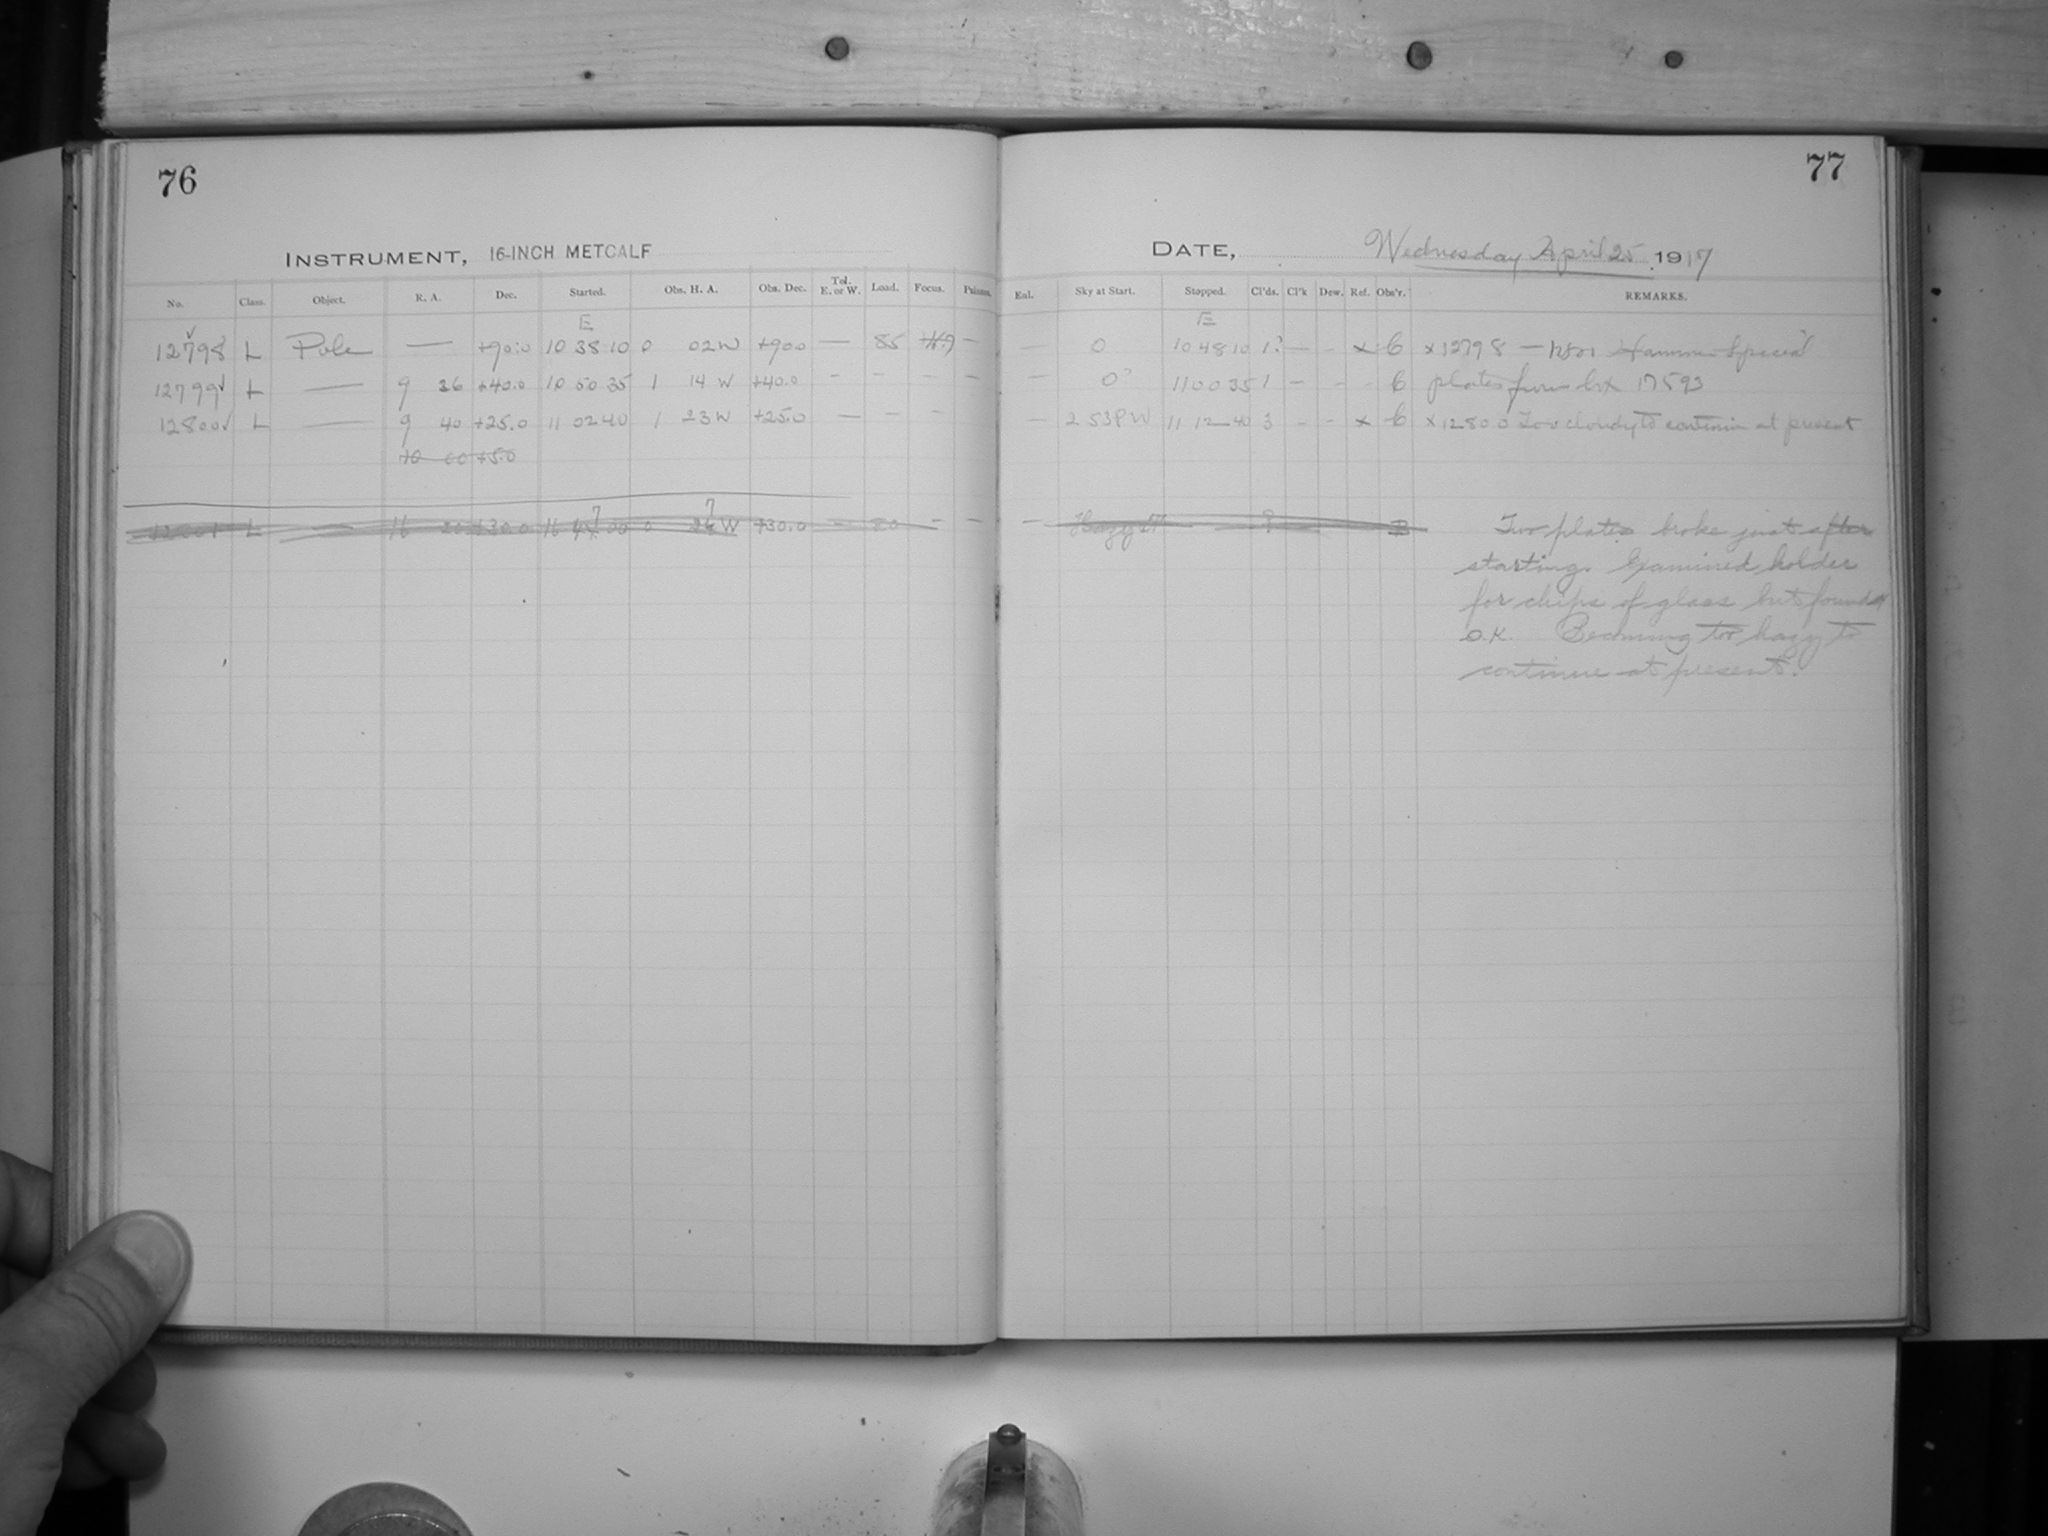 76
77
INSTRUMENT, 16-INCH METCALF
DATE, Wednesday April 25 1917
No. Class. Object. R. A. Dec. Started. Obs. H. A. Obs. Dec. Tel. E. or W. Load. Focus. Enl. Sky at Start. Stopped. Cl'ds. Cl'k Dew. Ref. Obs'r. REMARKS.
E E
12798 L Pole — +90.0 10 38 10 0 02 W +90.0 — 85 — — 0 10 48 10 1? — - x 6 x 12798 — Hammer Special
12799 L — 9 26 +40.0 10 50 35 1 14 W +40.0 - - - - — 0? 11 00 35 1 - - - 6 plates from box 17593
12800 L — 9 40 +25.0 11 02 40 1 23 W +25.0 — - - - — 2 53 P W 11 12 40 3 - - x 6 x 12800 Too cloudy to continue at present
10 00 +5.0
12801 L — 16 20 +30.0 16 00 0 W +30.0 — 80 - - — Hazy Two plates broke just after
starting. Examined holder
for chips of glass but found
O.K. Becoming too hazy to
continue at present.